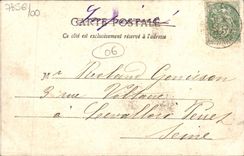 7856/00
CARTE POSTALE
Ce côté est exclusivement réservé à l'adresse
06
Mr Roland Genisson
3 rue Voltaire
à Levallois Perret
Seine